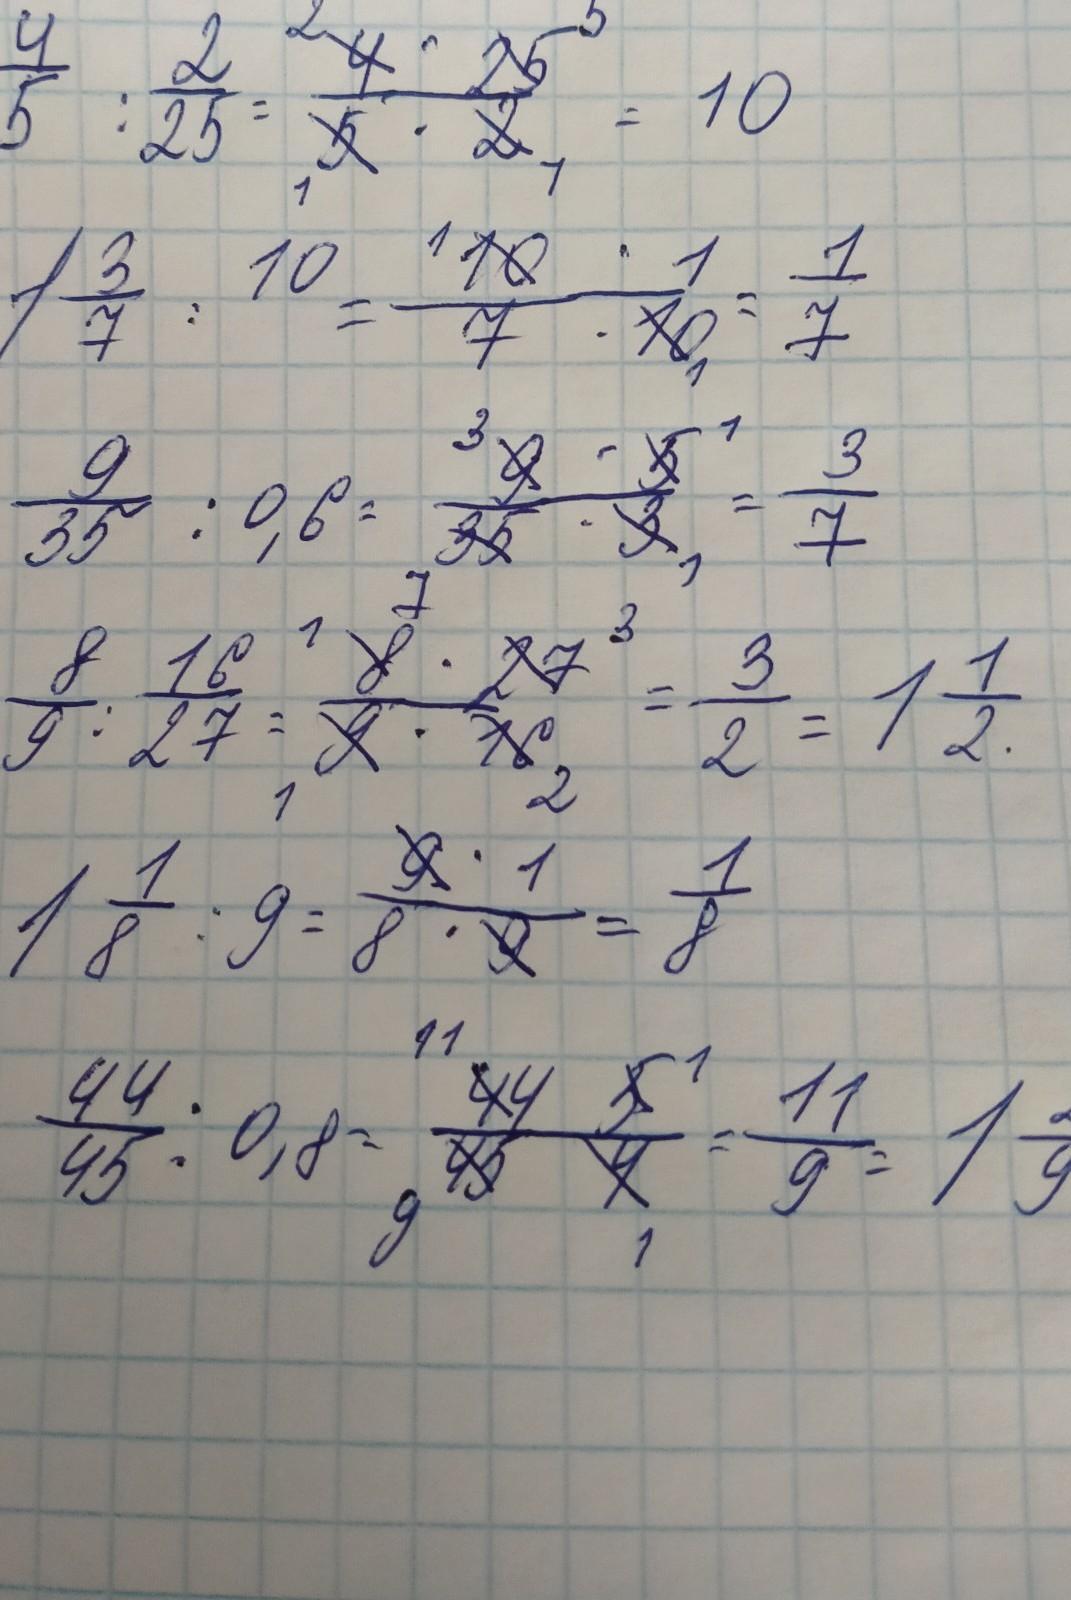 4/5 : 2/25 = 2 4 · 25 5 / 1 5 · 2 1 = 10
1 3/7 : 10 = 1 10 · 1 / 7 · 10 1 = 1/7
9/35 : 0,6 = 3 9 · 5 1 / 7 35 · 3 1 = 3/7
8/9 : 16/27 = 1 8 · 27 3 / 1 9 · 16 2 = 3/2 = 1 1/2.
1 1/8 : 9 = 9 · 1 / 8 · 9 = 1/8
44/45 : 0,8 = 11 44 5 1 / 9 45 4 1 = 11/9 = 1 2/9